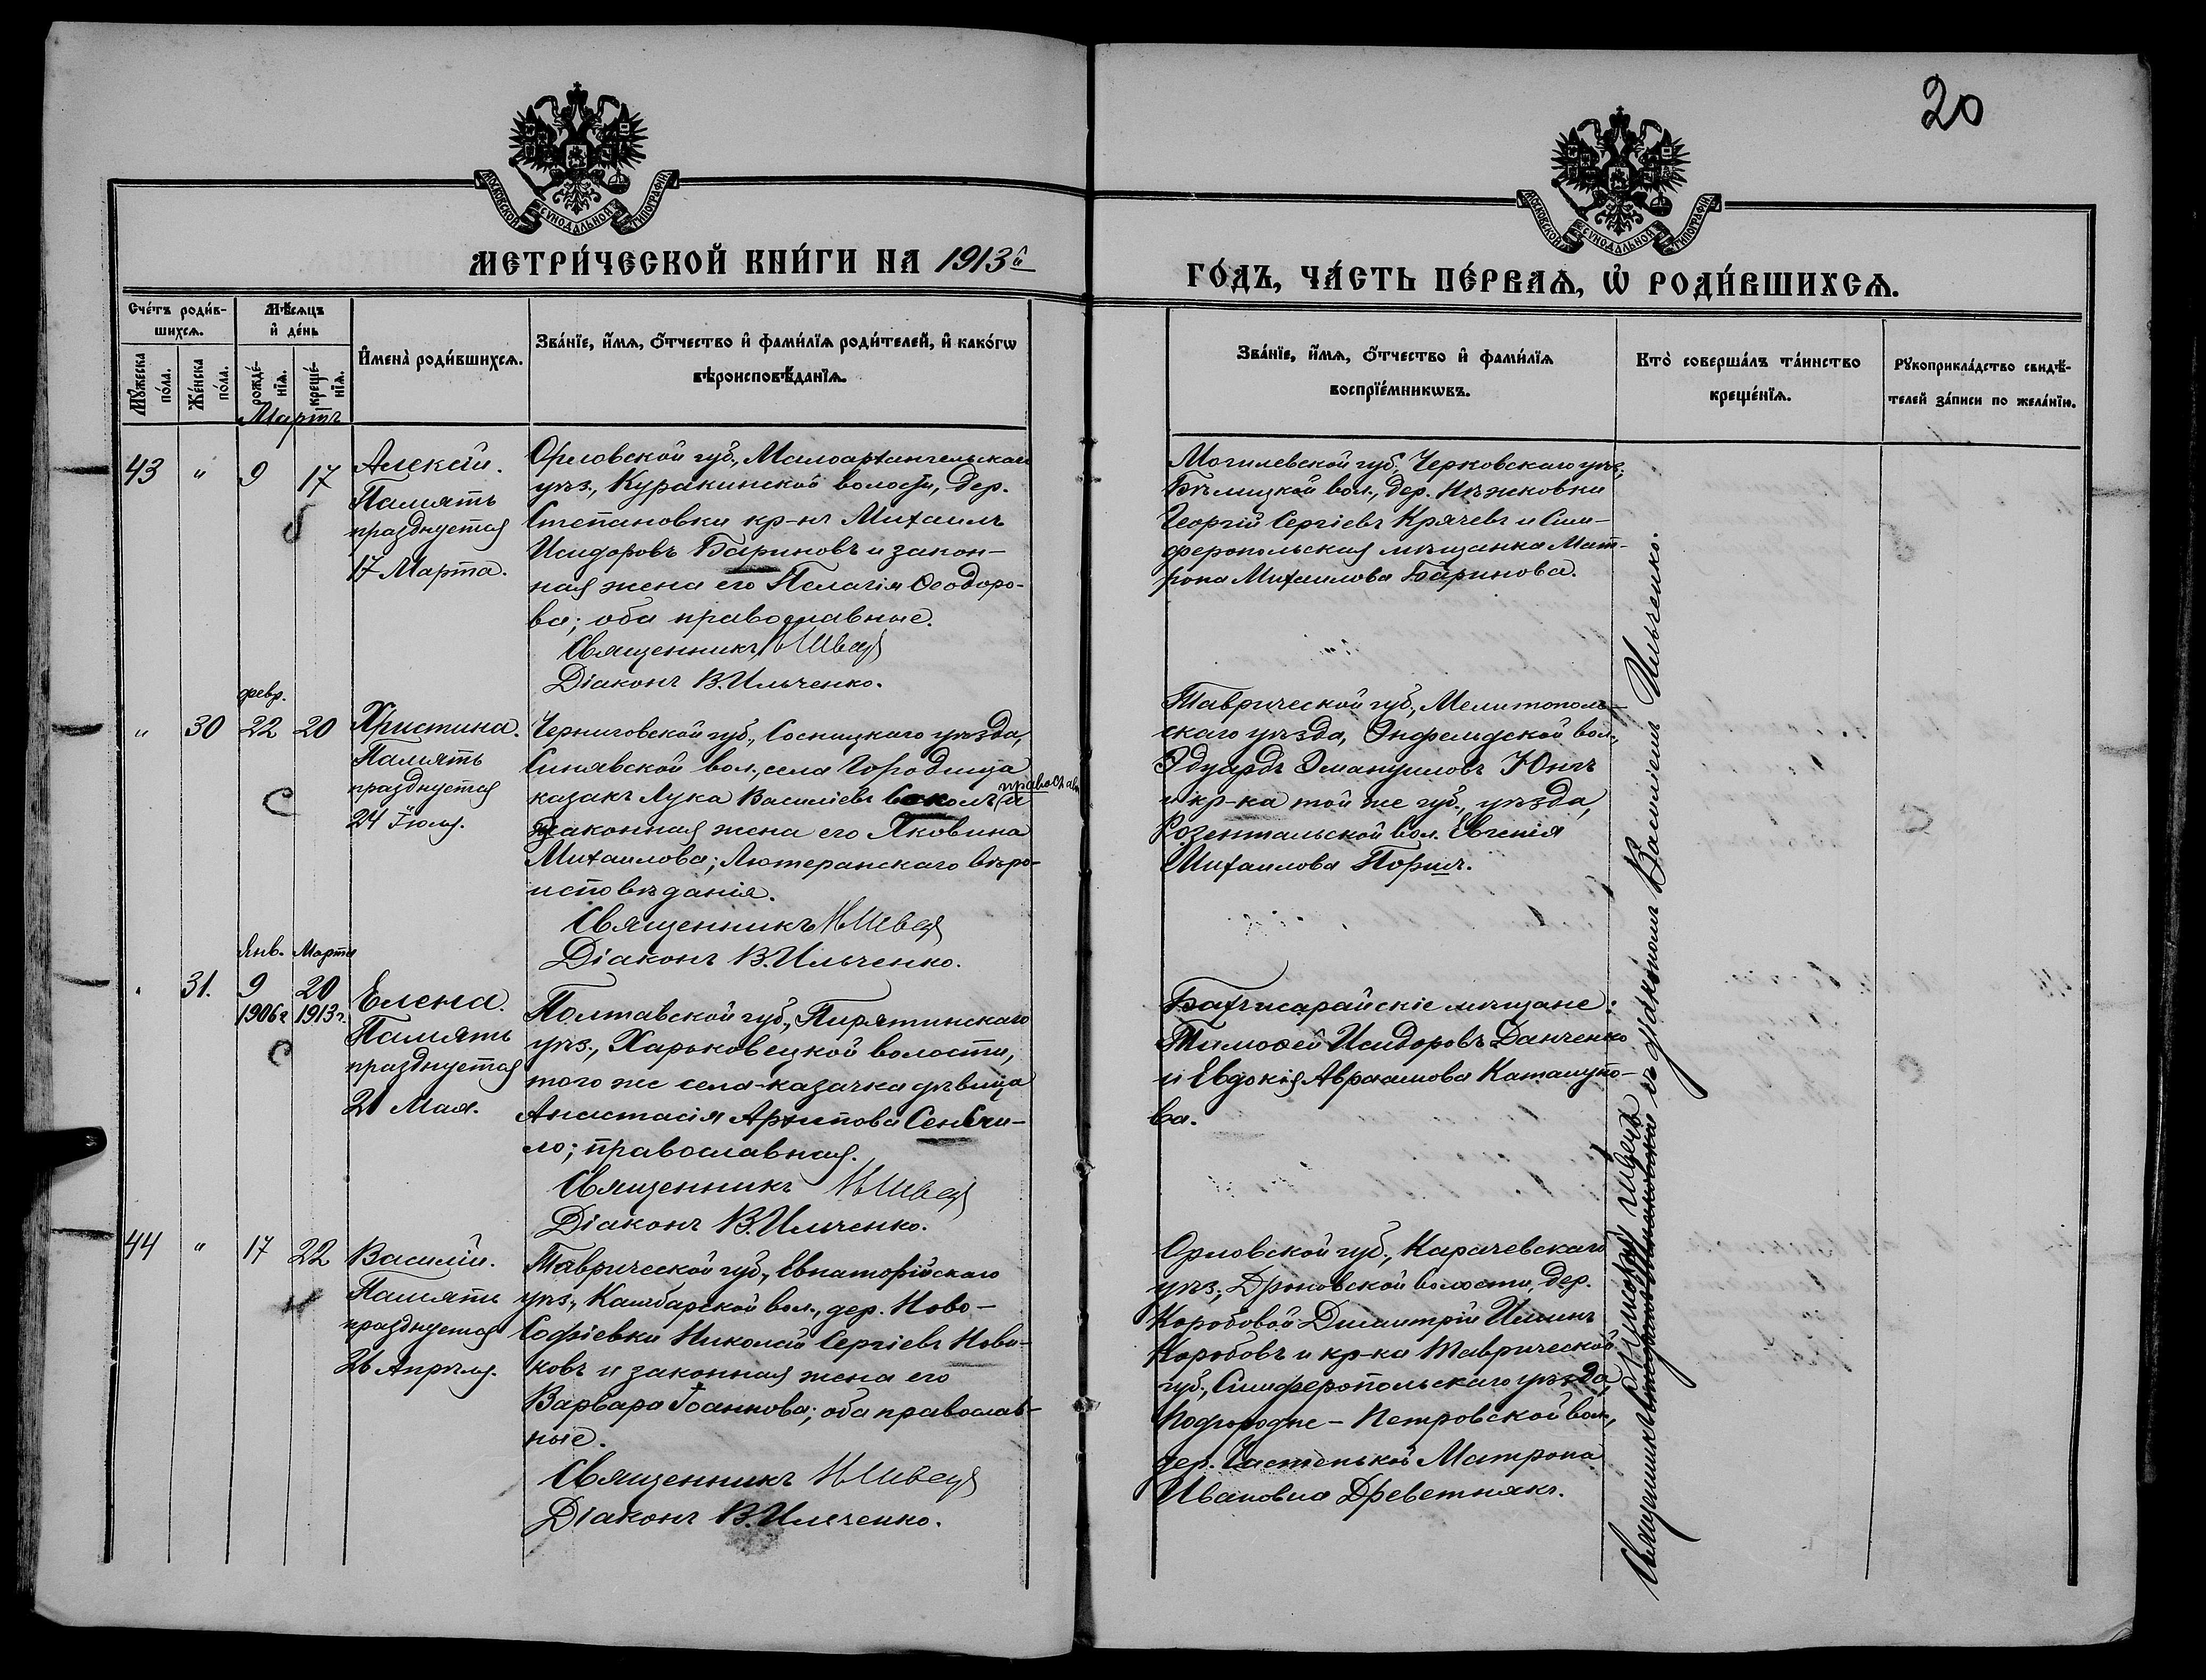 20
МОСКОВСКОЙ СѴНОДАЛЬНОЙ ТИПОГРАФІИ
МОСКОВСКОЙ СѴНОДАЛЬНОЙ ТИПОГРАФІИ
МЕТРИ́ЧЕСКОЙ КНИ́ГИ НА 1913й
ГО́ДЪ, ЧА́СТЬ ПЕ́РВАѦ, Ѡ҆ РОДИ́ВШИХСѦ.
Сче́тъ роди́в-
шихсѧ.
Мѣ́сѧцъ
и҆ де́нь
Мꙋ́жеска по́ла.
Же́нска по́ла.
рожде́-нїѧ.
креще́-нїѧ.
И҆мена̀ роди́вшихсѧ.
Зва́нїе, и҆́мѧ, ѻ҆́тчество и҆ фами́лїѧ роди́телей, и҆ како́гѡ
вѣроисповѣ́данїѧ.
Зва́нїе, и҆́мѧ, ѻ҆́тчество и҆ фами́лїѧ
воспрїе́мникѡвъ.
Кто̀ соверша́лъ та́инство
креще́нїѧ.
Рꙋкоприкла́дство свидѣ́-
телей за́писи по жела́нїю.
Мартъ
43 " 9 17
Алексій.
Память
празднуется
17 Марта.
Орловской губ., Малоархангельскаго
уѣз., Куракинской волости, дер.
Степановки кр-нъ Михаилъ
Исидоровъ Бариновъ и закон-
ная жена его Пелагія Ѳеодоро-
ва; оба православные.
Священникъ Н Швец
Діаконъ В. Ильченко.
Могилевской губ., Черковскаго уѣз.,
Бѣлицкой вол., дер.
Георгій Сергіевъ Крячевъ и Сим-
феропольская мѣщанка Мат-
рона Михаилова Баринова.
февр.
" 30 22 20
Христина.
Память
празднуется
24 Іюля.
Черниговской губ., Сосницкаго уѣзда,
Синявской вол., села Городища
казакъ Лука Василіевъ Соколъ православ. и
законная жена его Яковина
Михаилова; Лютеранскаго вѣро-
исповѣданія.
Священникъ Н Швец
Діаконъ В. Ильченко.
Таврической губ., Мелитополь-
скаго уѣзда, вол.,
Эдуардъ Эмануиловъ Юнгъ
и кр-ка той же губ., уѣзда,
Розентальской вол. Евгенія
Михаилова
Янв. Марта
" 31. 9 20
1906г. 1913г.
Елена.
Память
празднуется
21 Мая.
Полтавской губ., Пирятинскаго
уѣз., Харьковецкой волости,
того же села-казачка дѣвица
Анастасія Архипова Сенчи-
ло; православная.
Священникъ Н Швец
Діаконъ В. Ильченко.
Бахчисарайскіе мѣщане:
Тимоѳей Исидоровъ Данченко
и Евдокія Авраамова
ва.
44 " 17 22
Василій.
Память
празднуется
26 Апрѣля.
Таврической губ., Евпаторійскаго
уѣз., Камбарской вол., дер. Ново-
Софіевки Николай Сергіевъ Нови-
ковъ и законная жена его
Варвара Іоаннова; оба православ-
ные.
Священникъ Н Швец
Діаконъ В. Ильченко.
Орловской губ., Карачевскаго
уѣз., Дроновской волости, дер.
Коробовой Димитрій Илиинъ
Коробовъ и кр-ка Таврической
губ., Симферопольскаго уѣзда,
Подгородне-Петровской вол.,
дер. Чистенькой Матрона
Ивановна Древетнякъ.
Священникъ Николай Швецъ съ діакономъ Василіемъ Ильченко.